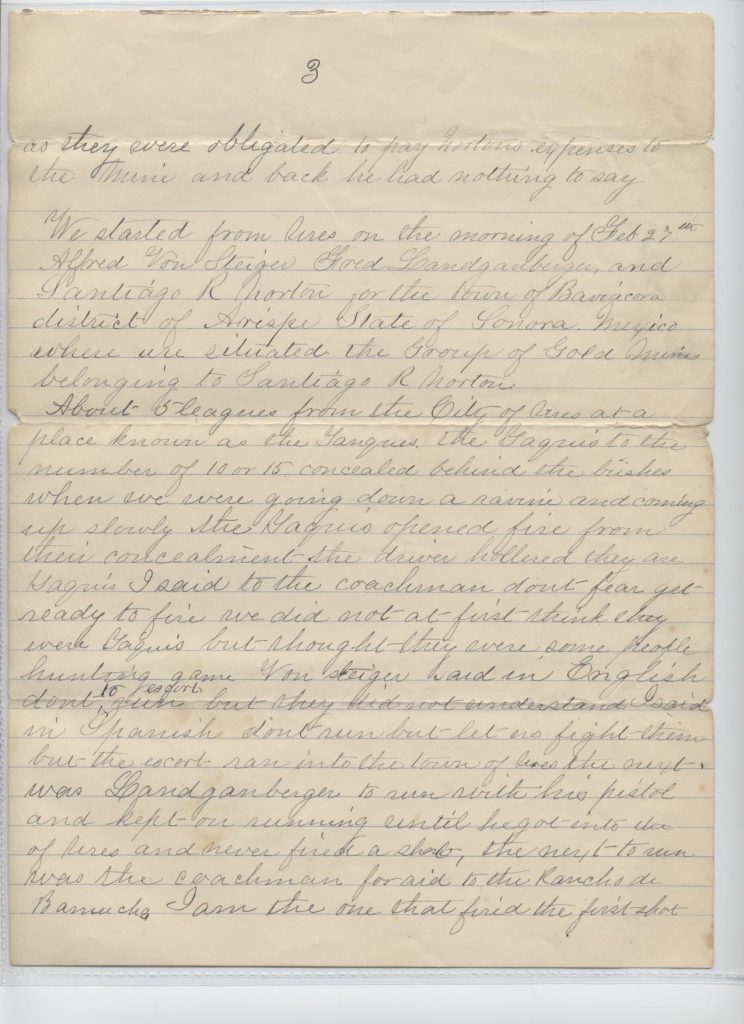 3
as they were obligated to pay Nortons expenses to
the Mine and back he had nothing to say
We started from Ures on the morning of Feb 27th
Alfred Von Steiger Fred Landganberger, and
Santiágo R Norton for the town of Baviácora
district of Arispe State of Sonora. Mexico
where are situated the Group of Gold Mines
belonging to Santiágo R Norton
About 5 leagues from the City of Ures at a
place known as the Tanques. the Yaquis to the
number of 10 or 15 concealed behind the bushes
when we were going down a ravine and coming
up slowly the Yaquis opened fire from
their concealment the driver hollered they are
Yaquis I said to the coachman dont fear get
ready to fire we did not at first think they
were Yaquis but thought they were some people
hunting game Von Steiger said in English
to escort
dont run but they did not understand I said
in Spanish dont run but let us fight them
but the escort ran into the town of Ures the next
was Landganberger to run with his pistol
and kept on running until he got into
of Ures and never fired a shot, the next to run
was the coachman for aid to the Rancho de
Bamucha I am the one that fired the first shot